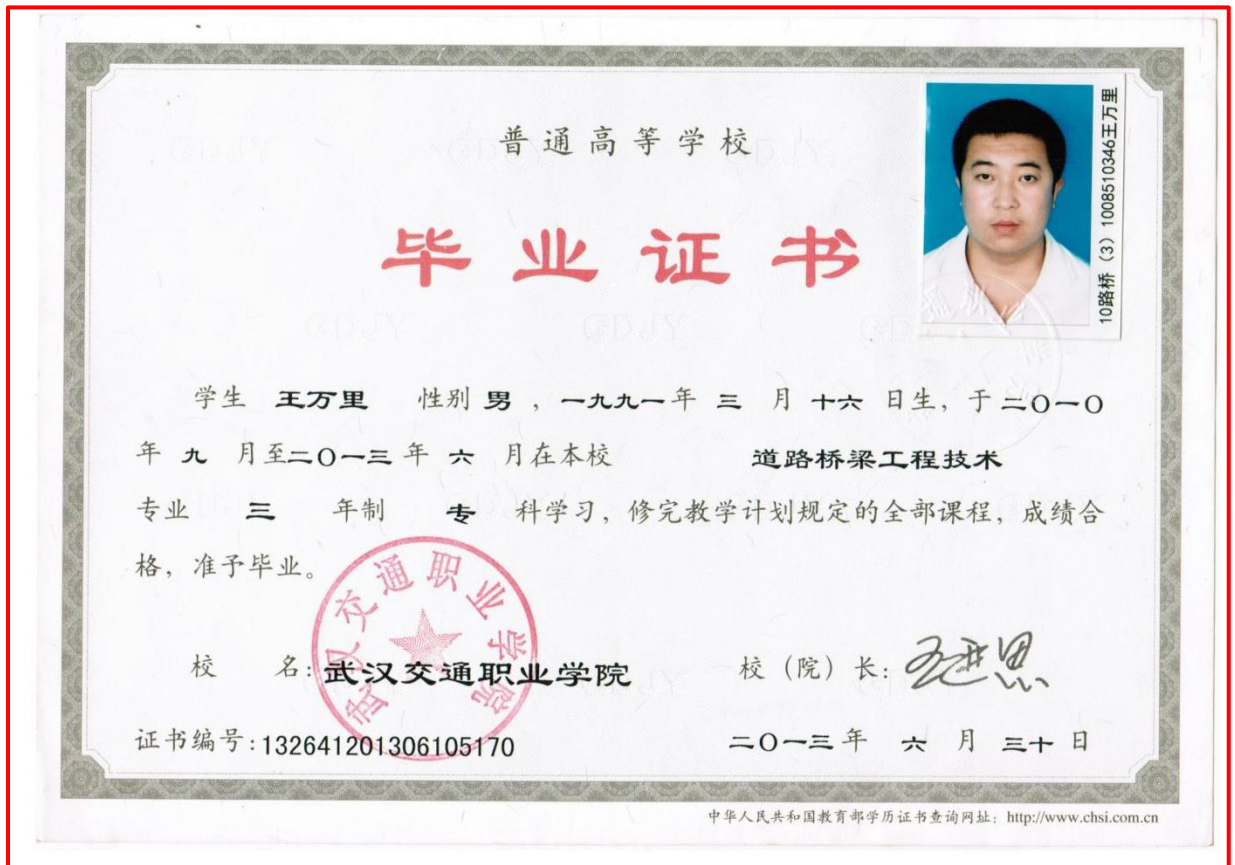 普通高等学校
毕业证书
10路桥（3）1008510346王万里
学生 王万里 性别 男 ，一九九一年 三 月 十六 日生，于二〇一〇
年 九 月至二〇一三年 六 月在本校 道路桥梁工程技术
专业 三 年制 专 科学习，修完教学计划规定的全部课程，成绩合
格，准予毕业。
武汉交通职业学院
校 名：武汉交通职业学院 校（院）长：
证书编号：132641201306105170 二〇一三年 六 月 三十 日
中华人民共和国教育部学历证书查询网址：http://www.chsi.com.cn